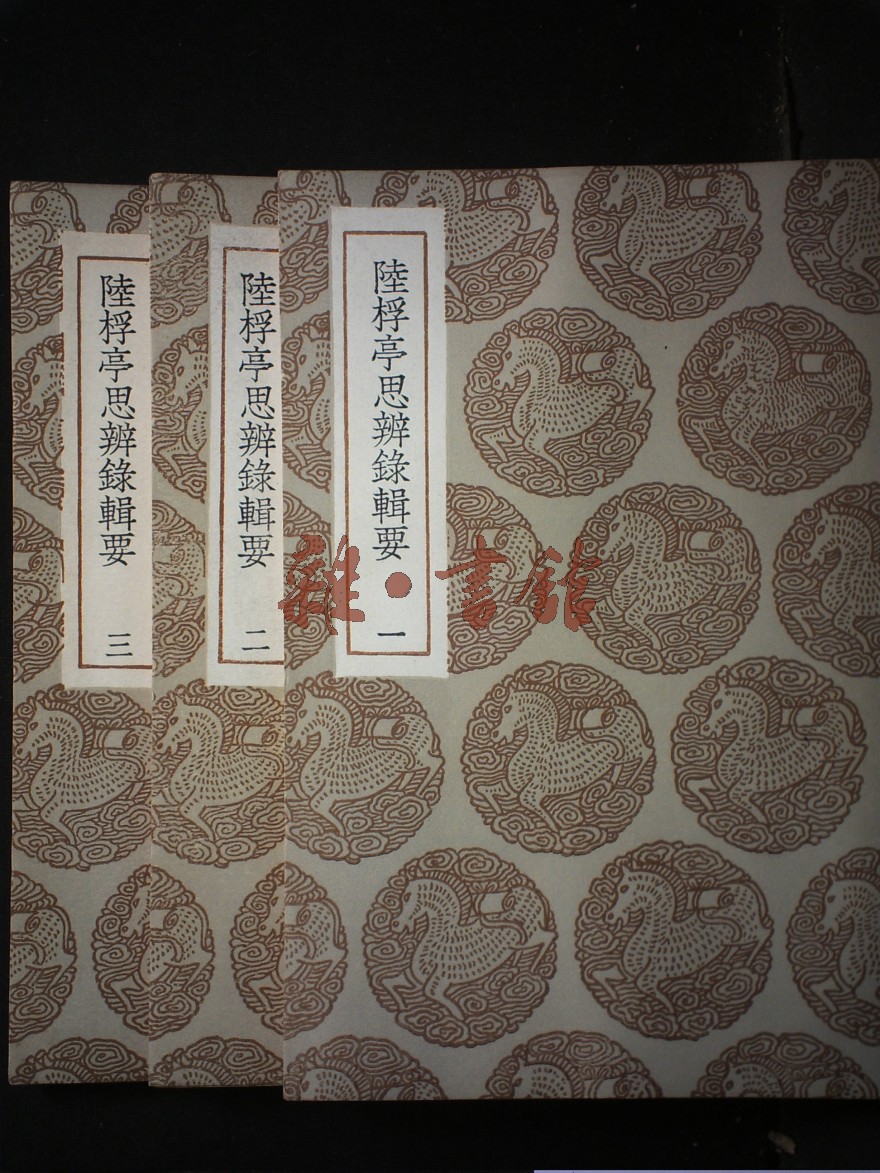 陸桴亭思辨錄輯要 一
陸桴亭思辨錄輯要 二
陸桴亭思辨錄輯要 三
雜·書館